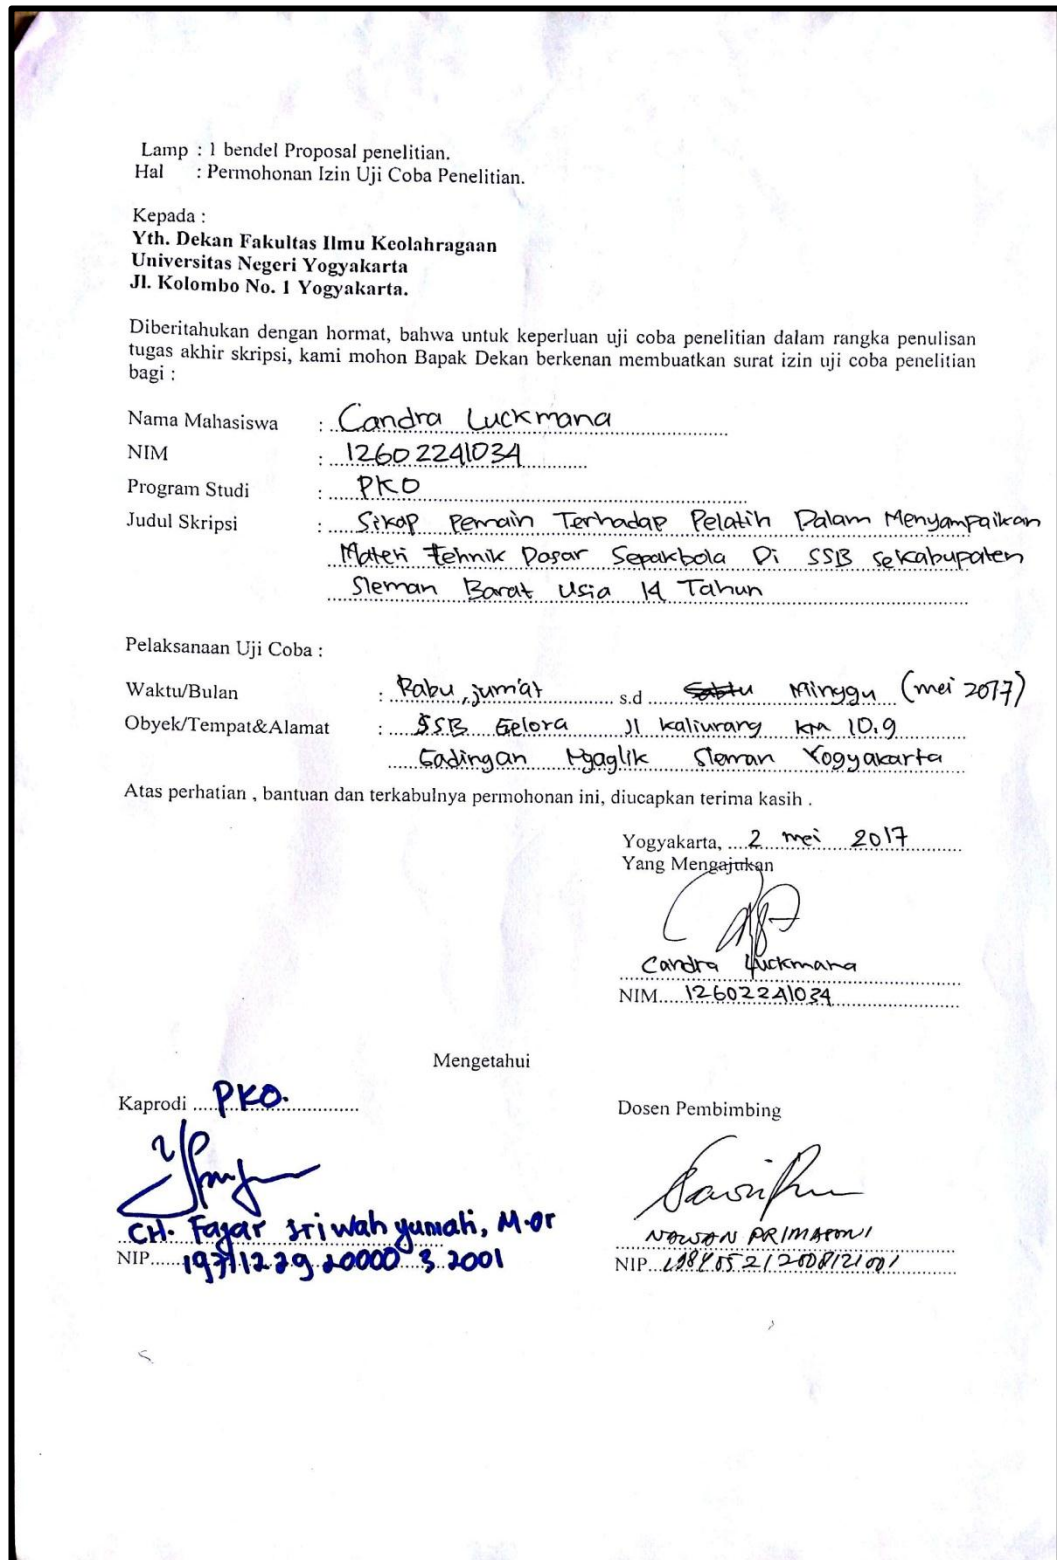 Lamp : 1 bendel Proposal penelitian.
Hal : Permohonan Izin Uji Coba Penelitian.
Kepada :
Yth. Dekan Fakultas Ilmu Keolahragaan
Universitas Negeri Yogyakarta
Jl. Kolombo No. 1 Yogyakarta.
Diberitahukan dengan hormat, bahwa untuk keperluan uji coba penelitian dalam rangka penulisan
tugas akhir skripsi, kami mohon Bapak Dekan berkenan membuatkan surat izin uji coba penelitian
bagi :
Nama Mahasiswa : Candra Luckmana
NIM : 12602241034
Program Studi : PKO
Judul Skripsi : Sikap Pemain Terhadap Pelatih Dalam Menyampaikan
Materi Tehnik Dasar Sepakbola Di SSB sekabupaten
Sleman Barat Usia 14 Tahun
Pelaksanaan Uji Coba :
Waktu/Bulan : Rabu, jum'at s.d Sabtu Minggu (mei 2017)
Obyek/Tempat&Alamat : SSB Gelora Jl kaliurang km 10.9
Gadingan Ngaglik Sleman Yogyakarta
Atas perhatian , bantuan dan terkabulnya permohonan ini, diucapkan terima kasih .
Yogyakarta, 2 mei 2017
Yang Mengajukan
Candra Luckmana
NIM 12602241034
Mengetahui
Kaprodi PKO.
Dosen Pembimbing
CH. Fajar Sriwahyuniati, M.or
NAWAN PRIMASONI
NIP 19711229 20000 3 2001
NIP 198405212008121001